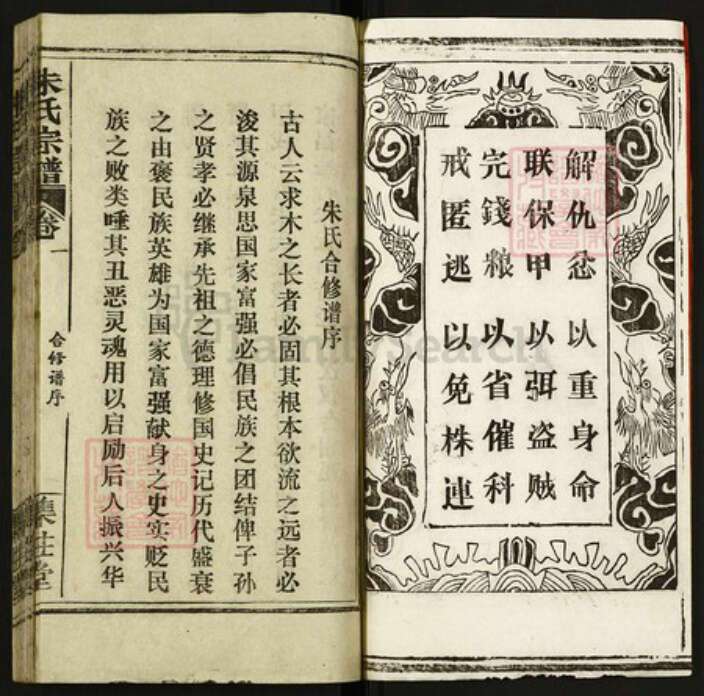 解仇忿 以重身命
联保甲 以弭盗贼
完錢粮 以省催科
戒匿逃 以免株连
朱氏合修谱序
古人云求木之长者必固其根本欲流之远者必
浚其源泉思国家富强必倡民族之团结俾子孙
之贤孝必继承先祖之德理修国史记历代盛衰
之由褒民族英雄为国家富强献身之史实贬民
族之败类唾其丑恶灵魂用以启励后人振兴华
朱氏宗譜
卷一
合修谱序
FamilySearch